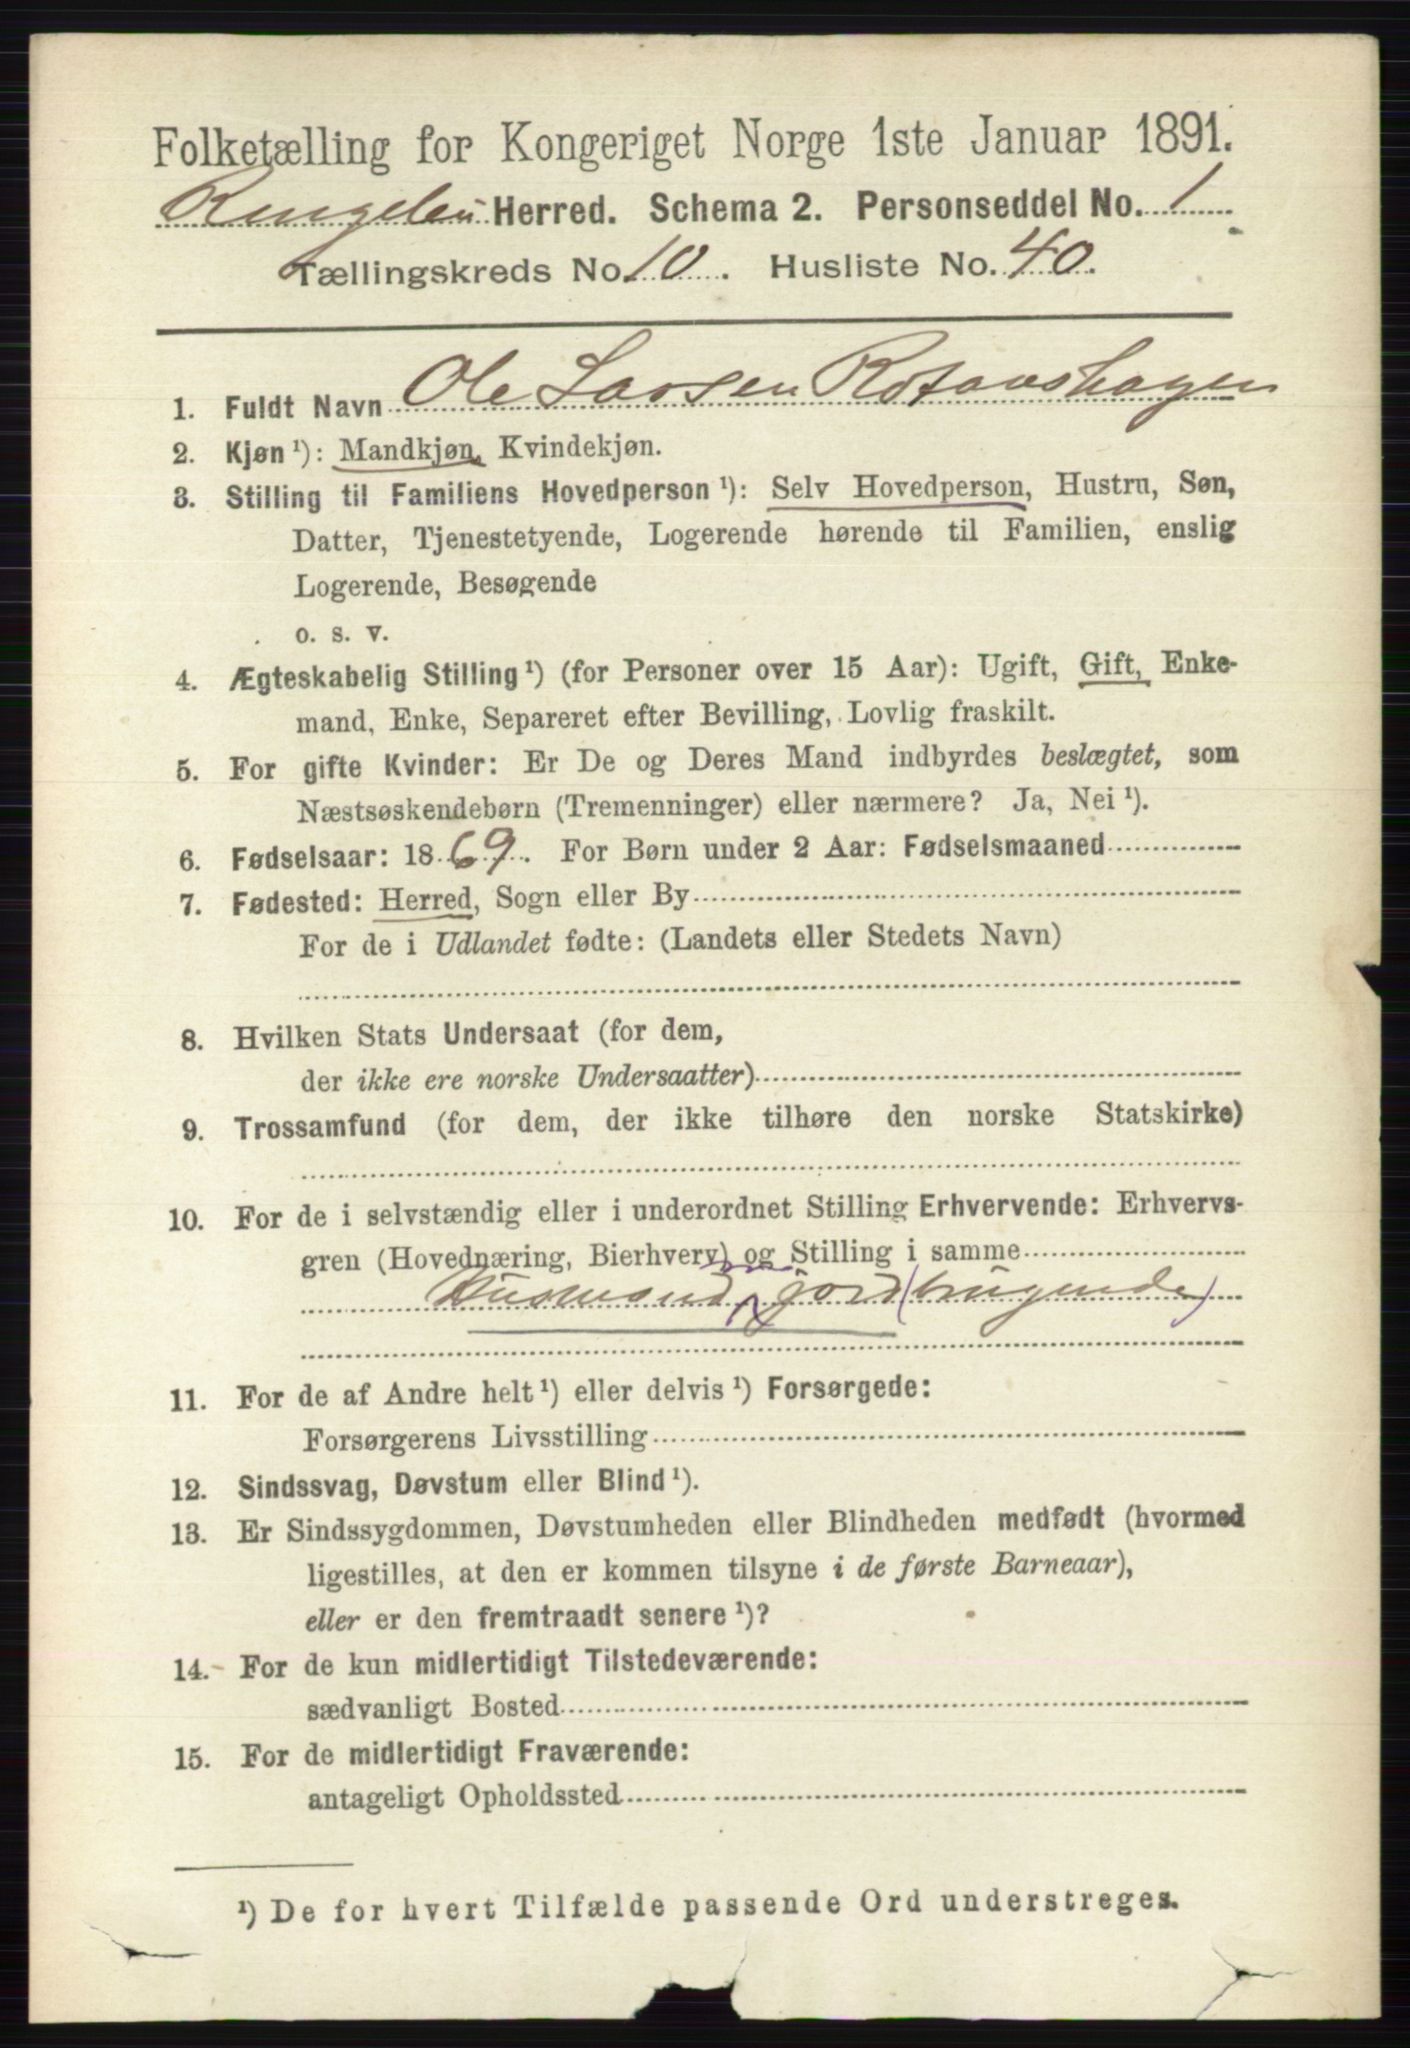 Folketælling for Kongeriget Norge 1ste Januar 1891.
Ringebu Herred. Schema 2. Personseddel No. 1
Tællingskreds No. 10. Husliste No. 40.
1. Fuldt Navn Ole Larsen
2. Kjøn ¹): Mandkjøn, Kvindekjøn.
3. Stilling til Familiens Hovedperson ¹): Selv Hovedperson, Hustru, Søn,
Datter, Tjenestetyende, Logerende hørende til Familien, enslig
Logerende, Besøgende
o. s. v.
4. Ægteskabelig Stilling ¹) (for Personer over 15 Aar): Ugift, Gift, Enke-
mand, Enke, Separeret efter Bevilling, Lovlig fraskilt.
5. For gifte Kvinder: Er De og Deres Mand indbyrdes beslægtet, som
Næstsøskendebørn (Tremenninger) eller nærmere? Ja, Nei ¹).
6. Fødselsaar: 1869. For Børn under 2 Aar: Fødselsmaaned
7. Fødested: Herred, Sogn eller By
For de i Udlandet fødte: (Landets eller Stedets Navn)
8. Hvilken Stats Undersaat (for dem,
der ikke ere norske Undersaatter)
9. Trossamfund (for dem, der ikke tilhøre den norske Statskirke)
10. For de i selvstændig eller i underordnet Stilling Erhvervende: Erhvervs-
gren (Hovednæring, Bierhverv) og Stilling i samme
Husmand jord(brugende)
11. For de af Andre helt ¹) eller delvis ¹) Forsørgede:
Forsørgerens Livsstilling
12. Sindssvag, Døvstum eller Blind ¹).
13. Er Sindssygdommen, Døvstumheden eller Blindheden medfødt (hvormed
ligestilles, at den er kommen tilsyne i de første Barneaar),
eller er den fremtraadt senere ¹)?
14. For de kun midlertidigt Tilstedeværende:
sædvanligt Bosted
15. For de midlertidigt Fraværende:
antageligt Opholdssted
¹) De for hvert Tilfælde passende Ord understreges.